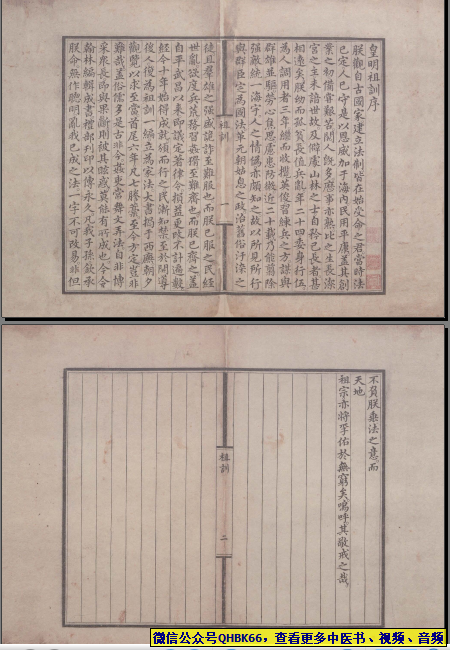 皇明祖訓序
朕觀自古國家建立法制皆在始受命之君當時法
已定人已守是以恩威加于海內民用平康蓋其創
業之初備嘗艱苦閱人旣多歷事亦熟比之生長深
宮之主未諳世故及僻處山林之士自矜己長者甚
相遠矣朕幼而孤貧長值兵亂年二十四委身行伍
為人調用者三年繼而收攬英俊習練兵之方謀與
群雄並驅勞心焦思慮患防微近二十載乃能翦除
強敵統一海宇人之情偽亦頗知之故以所見所行
與群臣定為國法革元朝姑息之政治舊俗汙染之
祖訓 一
徒且群雄之強盛詭詐至難服也而朕已服之民經
世亂欲度兵荒務習姦猾至難齊也而朕已齊之蓋
自平武昌以來即議定著律令損益更改不計遍數
經今十年始得成就頒而行之民漸知禁至於開導
後人復為祖訓一編立為家法大書揭于西廡朝夕
觀覽以求至當首尾六年凡七謄藁至今方定豈非
難哉蓋俗儒多是古非今姦吏常舞文弄法自非博
采衆長即與果斷則被其眩惑莫能有所成也今令
翰林編輯成書禮部刊印以傳永久凡我子孫欽承
朕命無作聰明亂我已成之法一字不可改易非但
不負朕垂法之意而
天地
祖宗亦將孚佑於無窮矣嗚呼其敬戒之哉
祖訓 二
微信公众号QHBK66，查看更多中医书、视频、音频